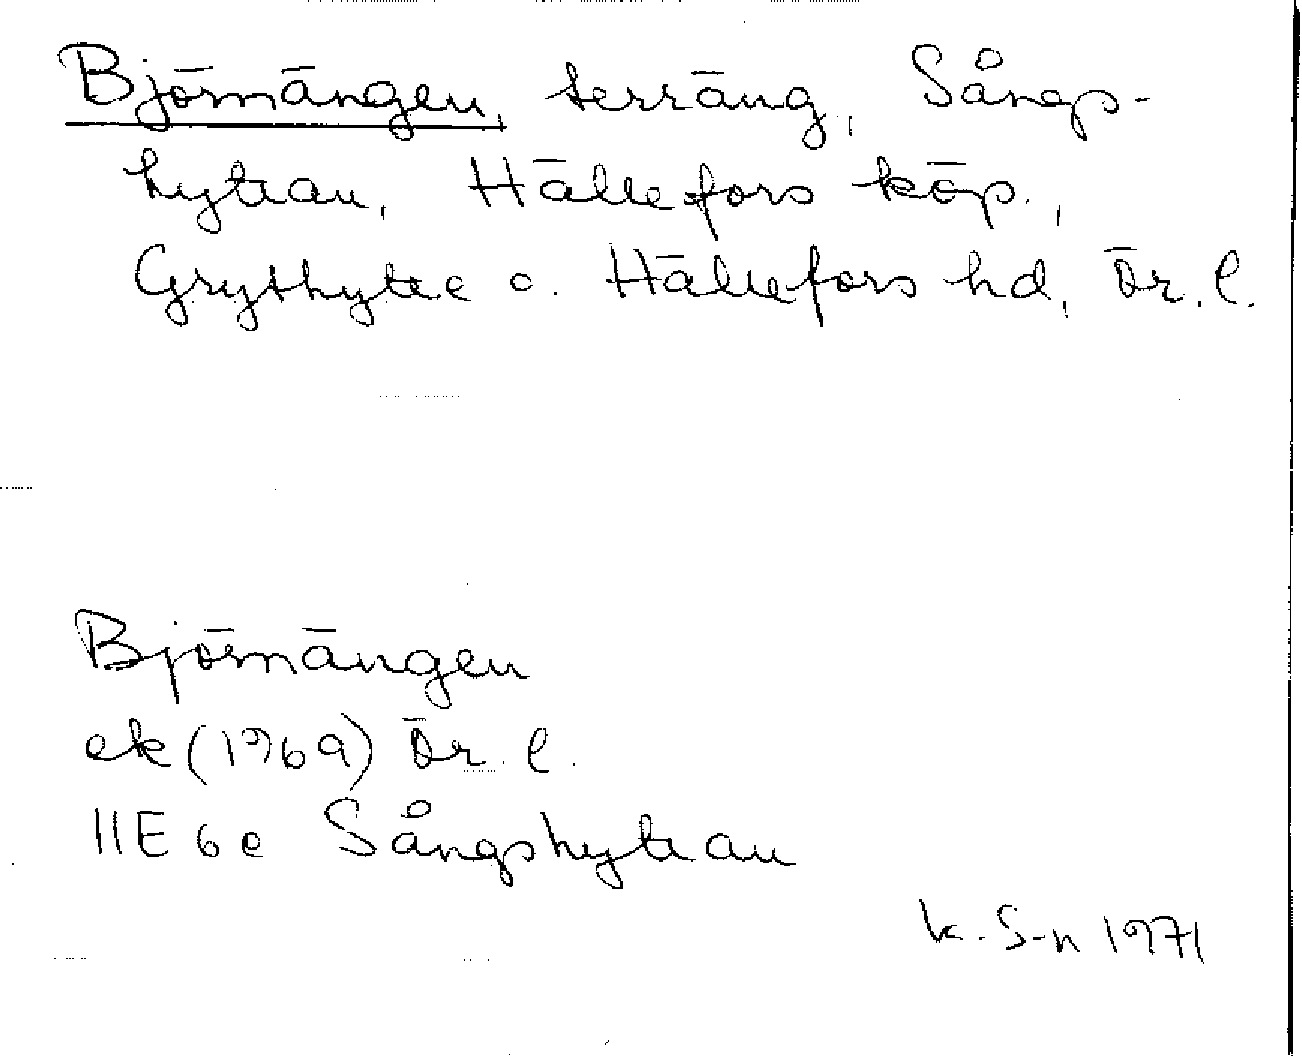 Björnängen, terräng, Sångs-
hyttan, Hällefors köp.,
Grythytte o. Hällefors hd, Ör. l.
Björnängen
ek (1969) Ör. l.
11E 6e Sångshyttan
K. S-n 1971